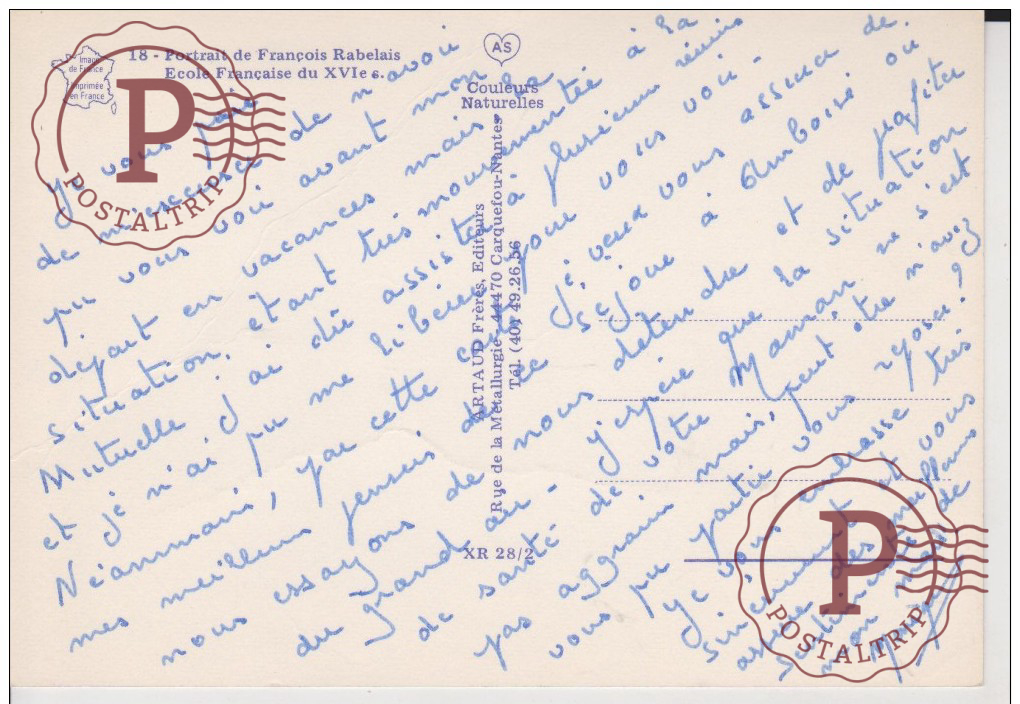 18 - Portrait de François Rabelais
Ecole Française du XVIe s.
Image
de France
Imprimée
en France
AS
Couleurs
Naturelles
ARTAUD Frères, Editeurs
Rue de la Métallurgie - 44470 Carquefou-Nantes
Tél. (40) 49.26.56
XR 28/2
je vous prie
de m'excuser de n'avoir
pu vous voir avant mon
départ en vacances mais, la
situation, étant très mouvementée à la
Mutuelle j'ai dû assister à plusieurs réunions
et je n'ai pu me libérer pour vous voir -
Néanmoins, par cette carte je veux vous assurer de
mes meilleures pensées de ce séjour à Amboise où
nous essayons de nous détendre et de profiter
du grand air - j'espère que la situation
de santé de votre Maman ne s'est
pas aggravée mais, peut être n'avez
vous pu partir vous reposer ??
Je vous embrasse très
sincèrement et vous
assure des meilleurs
sentiments de
mon mari
P
POSTALTRIP
P
POSTALTRIP